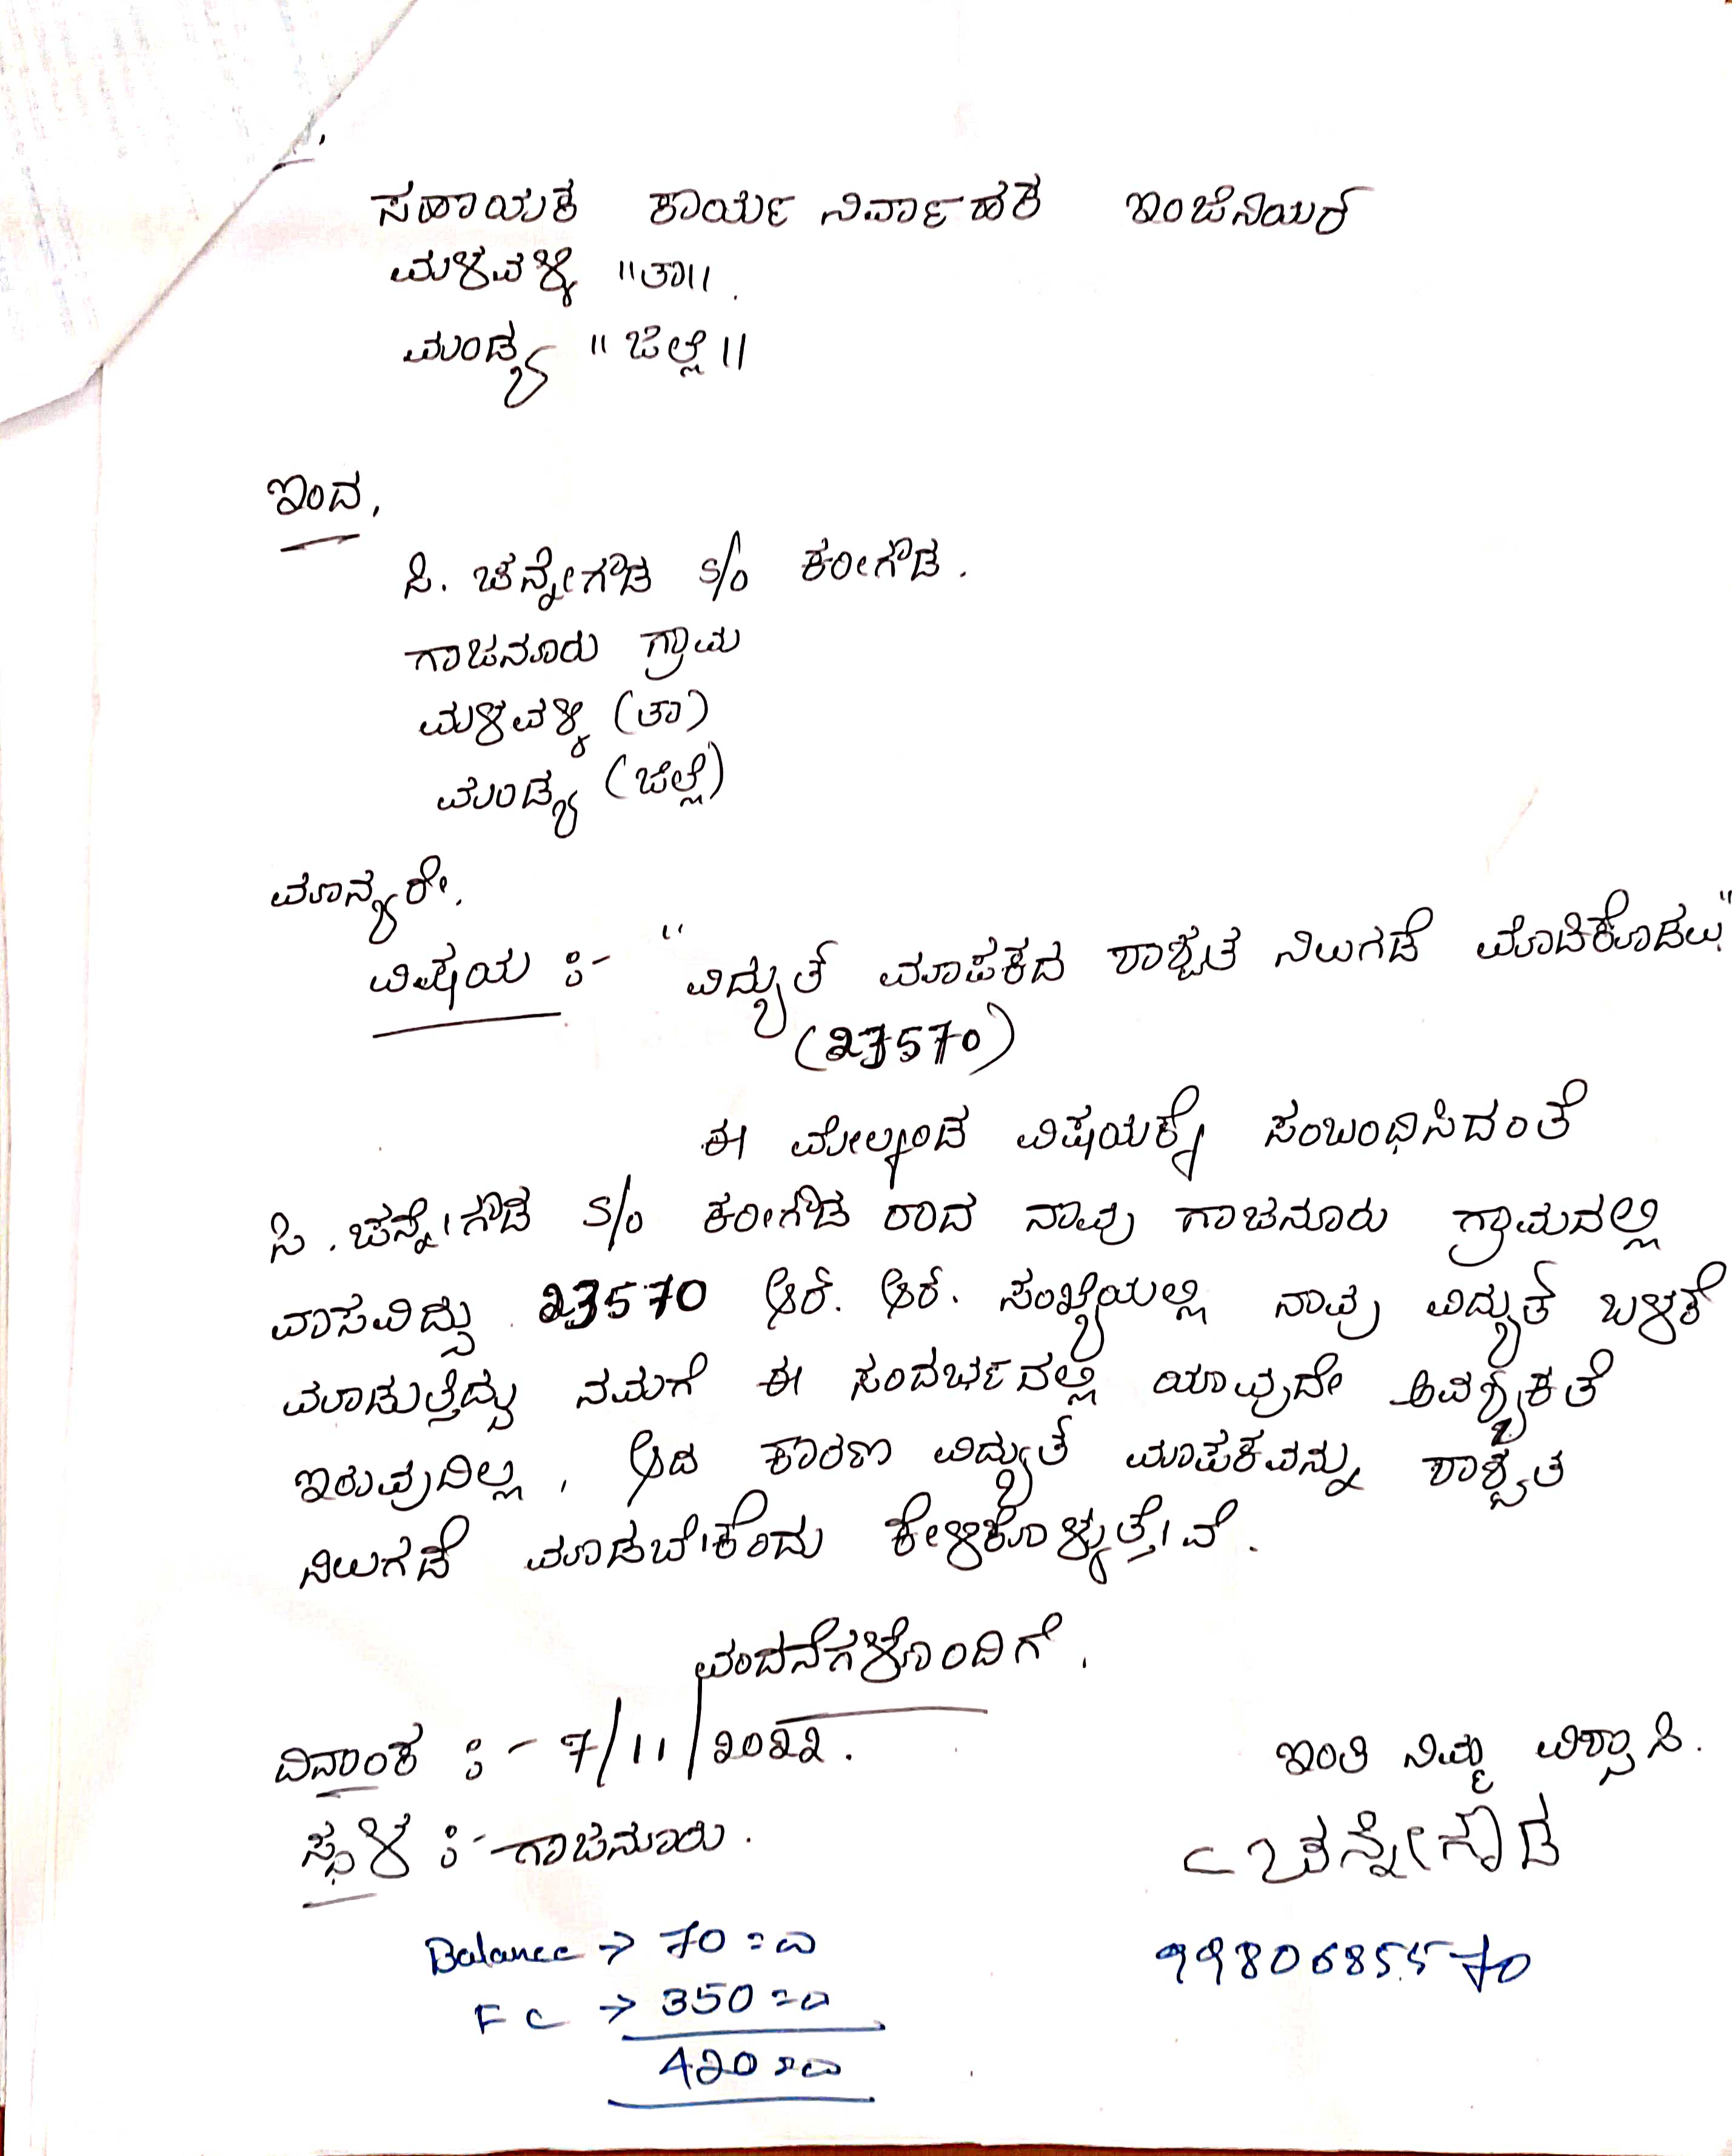 ಸಹಾಯಕ ಕಾರ್ಯ ನಿರ್ವಾಹಕ ಇಂಜಿನಿಯರ್
ಮಳವಳ್ಳಿ ॥ತಾ॥.
ಮಂಡ್ಯ ॥ಜಿಲ್ಲೆ॥
ಇಂದ,
ಸಿ. ಚನ್ನೇಗೌಡ S/o ಕರೀಗೌಡ.
ಗಾಜನೂರು ಗ್ರಾಮ
ಮಳವಳ್ಳಿ (ತಾ)
ಮಂಡ್ಯ (ಜಿಲ್ಲೆ)
ಮಾನ್ಯರೇ.
ವಿಷಯ :- "ವಿದ್ಯುತ್ ಮಾಪಕದ ಶಾಶ್ವತ ನಿಲುಗಡೆ ಮಾಡಿಕೊಡಲು"
(23570)
ಈ ಮೇಲ್ಕಂಡ ವಿಷಯಕ್ಕೆ ಸಂಬಂಧಿಸಿದಂತೆ
ಸಿ. ಚನ್ನೇಗೌಡ S/o ಕರೀಗೌಡ ರಾದ ನಾವು ಗಾಜನೂರು ಗ್ರಾಮದಲ್ಲಿ
ವಾಸವಿದ್ದು 23570 ಆರ್. ಆರ್. ಸಂಖ್ಯೆಯಲ್ಲಿ ನಾವು ವಿದ್ಯುತ್ ಬಳಕೆ
ಮಾಡುತ್ತಿದ್ದು ನಮಗೆ ಈ ಸಂದರ್ಭದಲ್ಲಿ ಯಾವುದೇ ಅವಶ್ಯಕತೆ
ಇರುವುದಿಲ್ಲ, ಆದ ಕಾರಣ ವಿದ್ಯುತ್ ಮಾಪಕವನ್ನು ಶಾಶ್ವತ
ನಿಲುಗಡೆ ಮಾಡಬೇಕೆಂದು ಕೇಳಿಕೊಳ್ಳುತ್ತೇವೆ.
ವಂದನೆಗಳೊಂದಿಗೆ.
ದಿನಾಂಕ :- 7/11/2022. ಇಂತಿ ನಿಮ್ಮ ವಿಶ್ವಾಸಿ.
ಸ್ಥಳ :- ಗಾಜನೂರು. ಚನ್ನೇಗೌಡ
Balance → 70=00
FC → 350=00
420=00